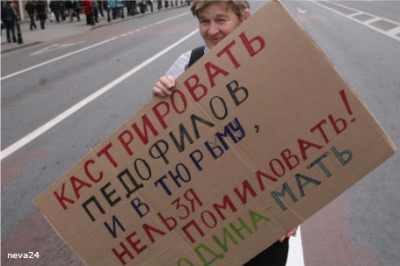 КАСТРИРОВАТЬ
ПЕДОФИЛОВ
И В ТЮРЬМУ,
НЕЛЬЗЯ
ПОМИЛОВАТЬ!
ОДИНА-МАТЬ
neva24